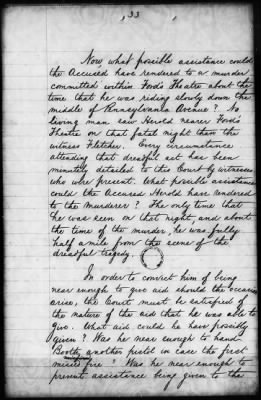 33
Now, what possible assistance could
the Accused have rendered to a murder
committed within Ford's Theatre about the
time that he was riding slowly down the
middle of Pennsylvania Avenue? No
living man saw Herold nearer Ford's
Theatre on that fatal night than the
witness Fletcher. Every circumstance
attending that dreadful act has been
minutely detailed to this Court by witnesses
who were present. What possible assistance
could the Accused Herold have rendered
to the murderer? The only time that
he was seen on that night, and about
the time of the murder, he was fully
half a mile from the scene of the
dreadful tragedy.
In order to convict him of being
near enough to give aid should the occasion
arise, the Court must be satisfied of
the nature of the aid that he was able to
give. What aid could he have possibly
given? Was he near enough to hand
Booth another pistol in case the first
missed fire? Was he near enough to
prevent assistance being given to the